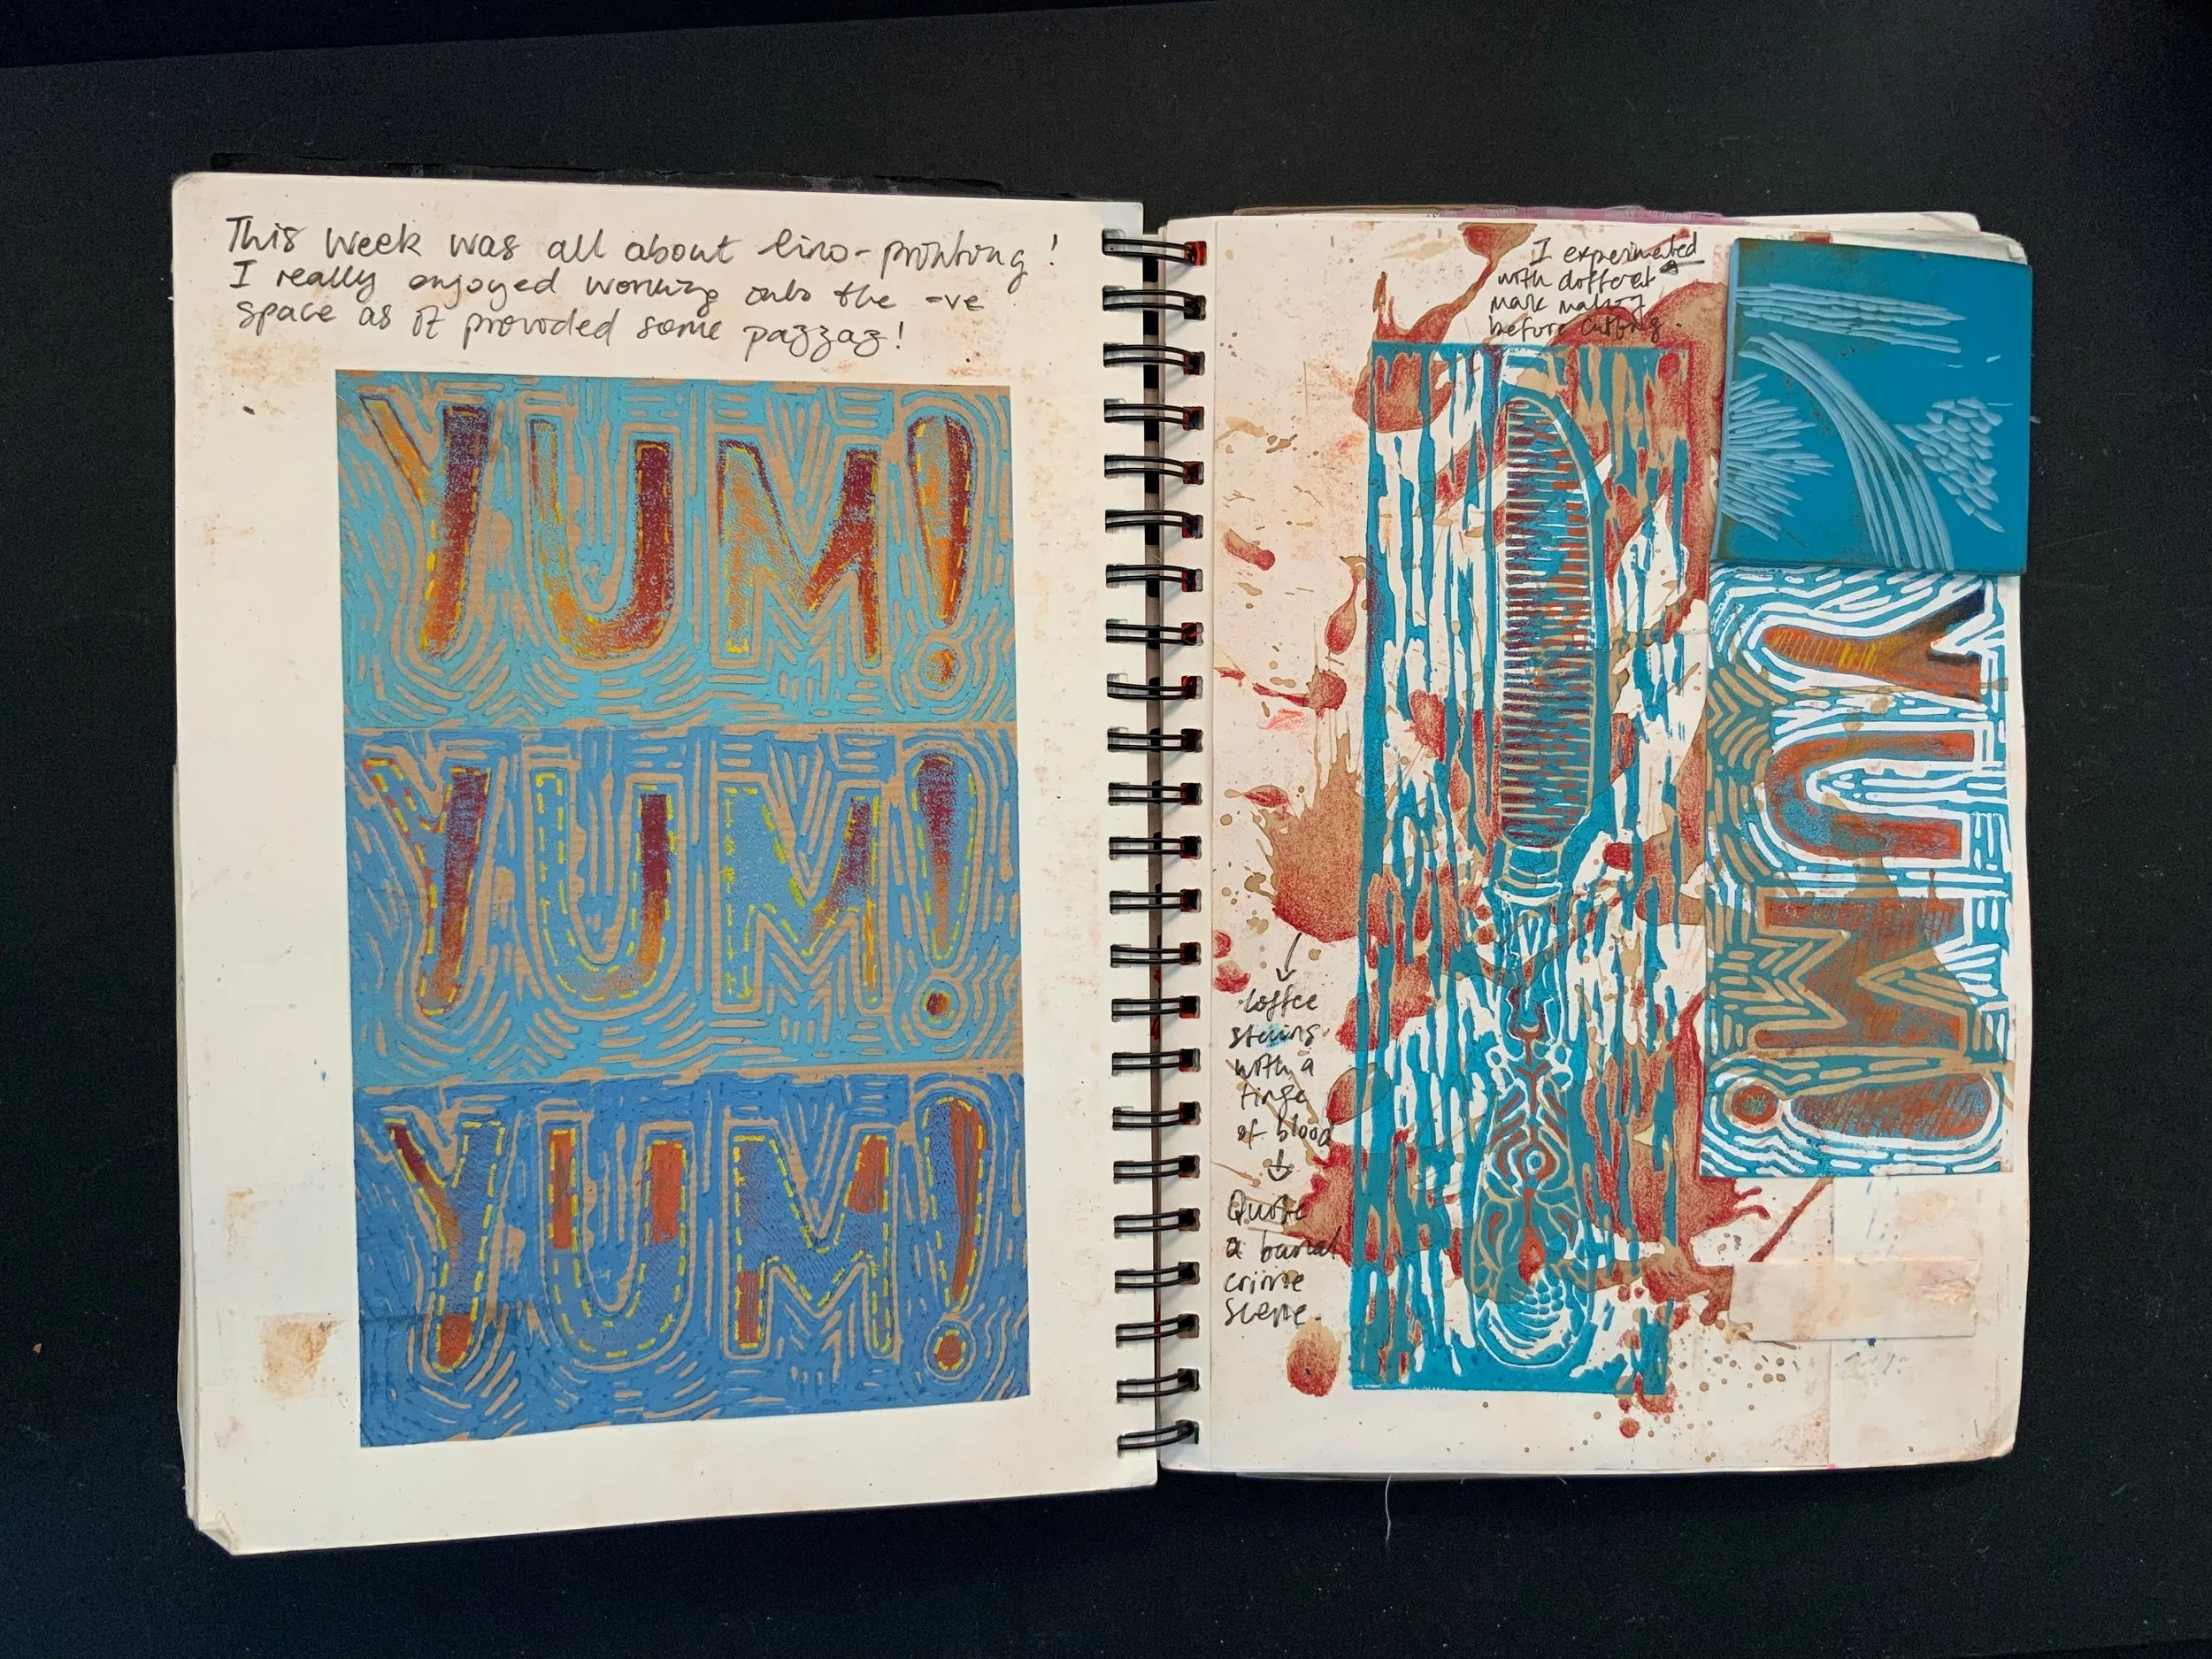 This week was all about lino-printing!
I really enjoyed working into the -ve
space as it provided some pazzaz!
YUM!
YUM!
YUM!
I experimented
with different
mark making
before cutting.
YUM!
coffee
stains
with a
tinge
of blood
Quote
a banal
crime
scene.